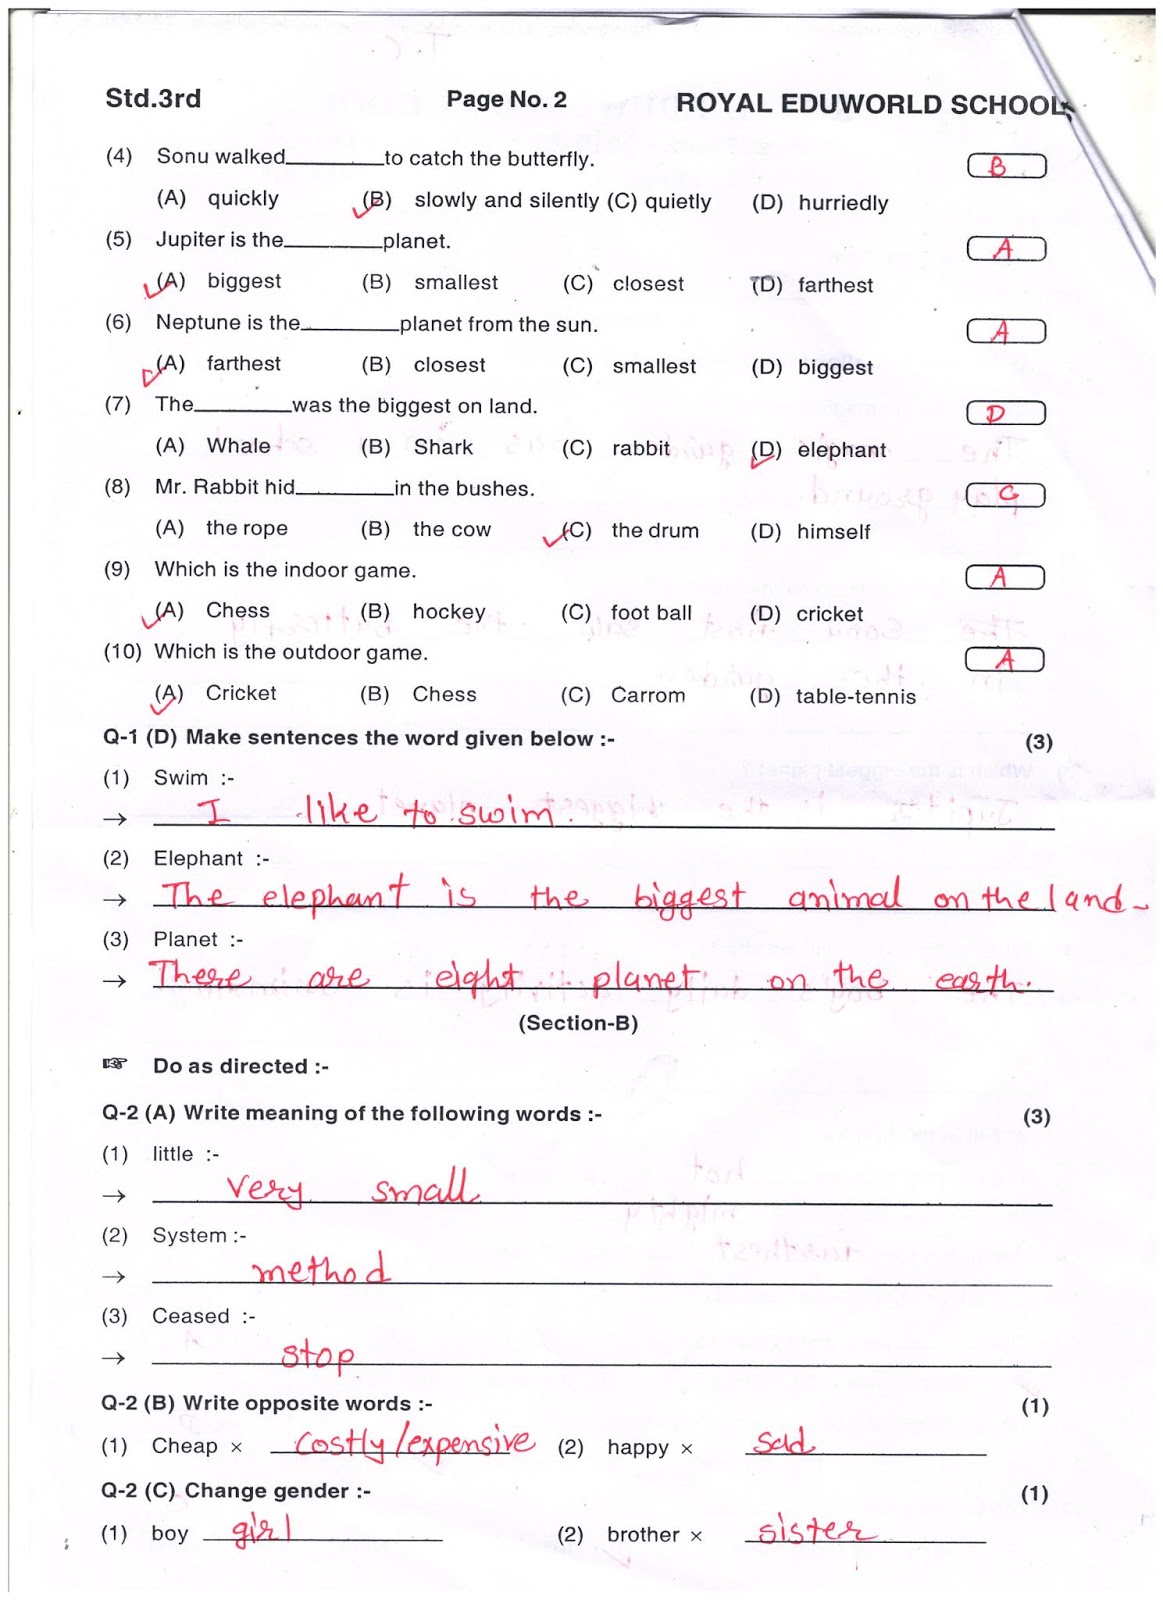 Std.3rd Page No. 2 ROYAL EDUWORLD SCHOOL
(4) Sonu walked________to catch the butterfly. B
(A) quickly (B) slowly and silently (C) quietly (D) hurriedly
(5) Jupiter is the________planet. A
(A) biggest (B) smallest (C) closest (D) farthest
(6) Neptune is the________planet from the sun. A
(A) farthest (B) closest (C) smallest (D) biggest
(7) The________was the biggest on land. D
(A) Whale (B) Shark (C) rabbit (D) elephant
(8) Mr. Rabbit hid________in the bushes. C
(A) the rope (B) the cow (C) the drum (D) himself
(9) Which is the indoor game. A
(A) Chess (B) hockey (C) foot ball (D) cricket
(10) Which is the outdoor game. A
(A) Cricket (B) Chess (C) Carrom (D) table-tennis
Q-1 (D) Make sentences the word given below :- (3)
(1) Swim :-
→ I like to swim.
(2) Elephant :-
→ The elephant is the biggest animal on the land.
(3) Planet :-
→ There are eight planet on the earth.
(Section-B)
☞ Do as directed :-
Q-2 (A) Write meaning of the following words :- (3)
(1) little :-
→ very small
(2) System :-
→ method
(3) Ceased :-
→ stop
Q-2 (B) Write opposite words :- (1)
(1) Cheap × costly/expensive (2) happy × sad
Q-2 (C) Change gender :- (1)
(1) boy girl (2) brother × sister